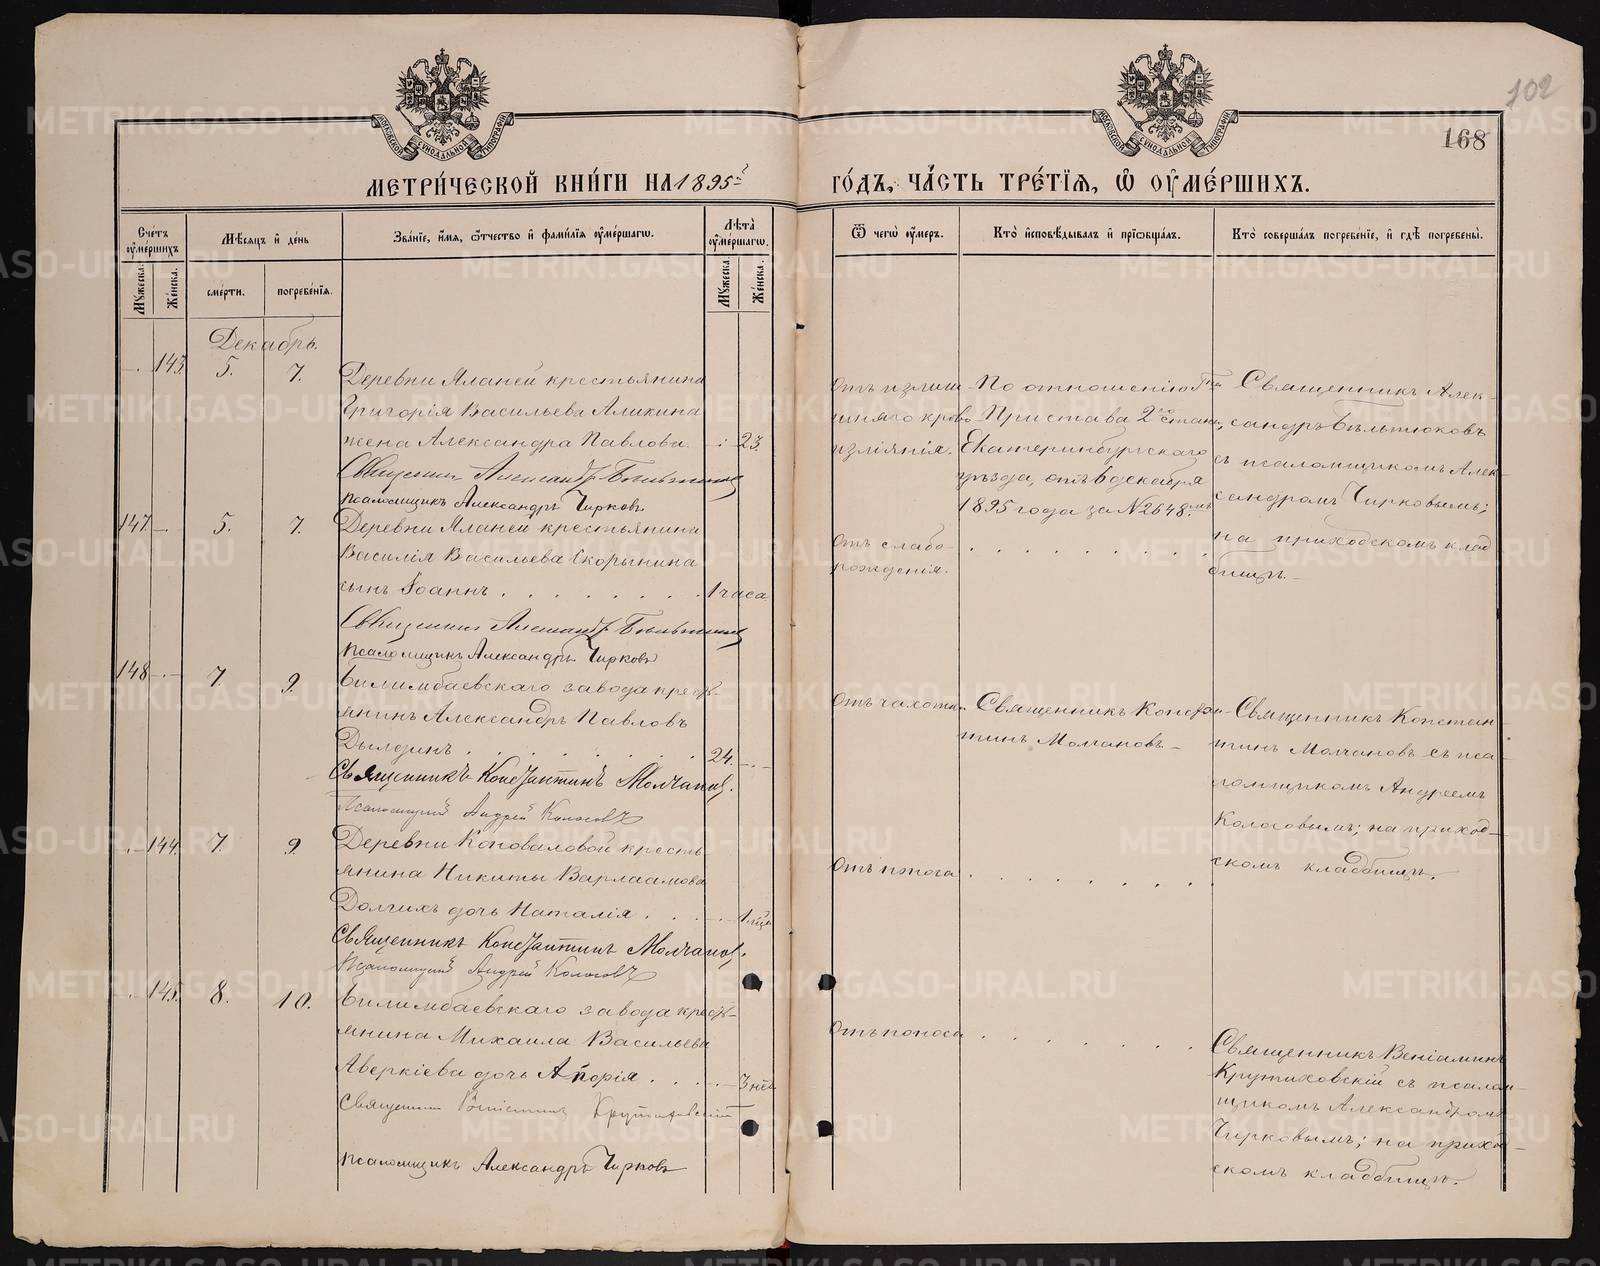 102
168
МЕТРИ́ЧЕСКОЙ КНИ́ГИ НА 1895й
ГО́ДЪ, ЧА́СТЬ ТРЕ́ТІЯ, Ѿ ОУМЕ́РШИХЪ.
Сче́тъ оумершихъ
Мѣсяцъ и де́нь
Зва́ніе, и́мя, ѻтчество и фами́лія оумершагѡ.
Лѣта оумершагѡ.
Ѿ чегѡ оумеръ.
Кто исповѣдывалъ и пріѡбщалъ.
Кто совершалъ погребе́ніе, и гдѣ погребены.
Мꙋжеска.
Же́нска.
сме́рти.
погребе́нія.
Мꙋжеска.
Же́нска.
Декабрь.
143 5. 7. Деревни Яланей крестьянина
Григорія Васильева Аликина
жена Александра Павлова. 23.
Священникъ Александръ Бѣльтюковъ
Псаломщикъ Александръ Чирковъ
Отъ излиш
шняго крово
изліянія.
По отношенію Гна
Пристава 2го стана,
Екатеринбургскаго
уѣзда, отъ 6 декабря
1895 года за № 2648.мъ
Священникъ Алек-
сандръ Бѣльтюковъ
съ псаломщикомъ Алек-
сандромъ Чирковымъ;
на приходскомъ клад
бищѣ.
147 5. 7. Деревни Яланей крестьянина
Василія Васильева Скорынина
сынъ Іоаннъ . . . . . . . . 1 часа
Священникъ Александръ Бѣльтюковъ
Псаломщикъ Александръ Чирковъ
Отъ слабо-
рожденія.
148 7. 9. Билимбаевскаго завода крест-
янинъ Александръ Павловъ
Дылдинъ . . . . . . . 24.
Священникъ Константинъ Молчановъ.
Псаломщикъ Андрей Колосовъ
Отъ чахотки.
Священникъ Констан-
тинъ Молчановъ
Священникъ Констан-
тинъ Молчановъ съ пса-
ломщикомъ Андреемъ
Колосовымъ; на приход-
скомъ кладбищѣ.
144 7. 9. Деревни Коноваловой кресть-
янина Никиты Варлаамова
Долгихъ дочь Наталія . . . 1 мѣсц
Священникъ Константинъ Молчановъ.
Псаломщикъ Андрей Колосовъ
Отъ поноса
145. 8. 10. Билимбаевскаго завода крест-
янина Михаила Васильева
Аверкіева дочь . . . . 3 нед
Священникъ Веніаминъ Крутиховскій
Псаломщикъ Александръ Чирковъ
Отъ поноса
Священникъ Веніаминъ
Крутиховскій съ псалом-
щикомъ Александромъ
Чирковымъ; на приход-
скомъ кладбищѣ.